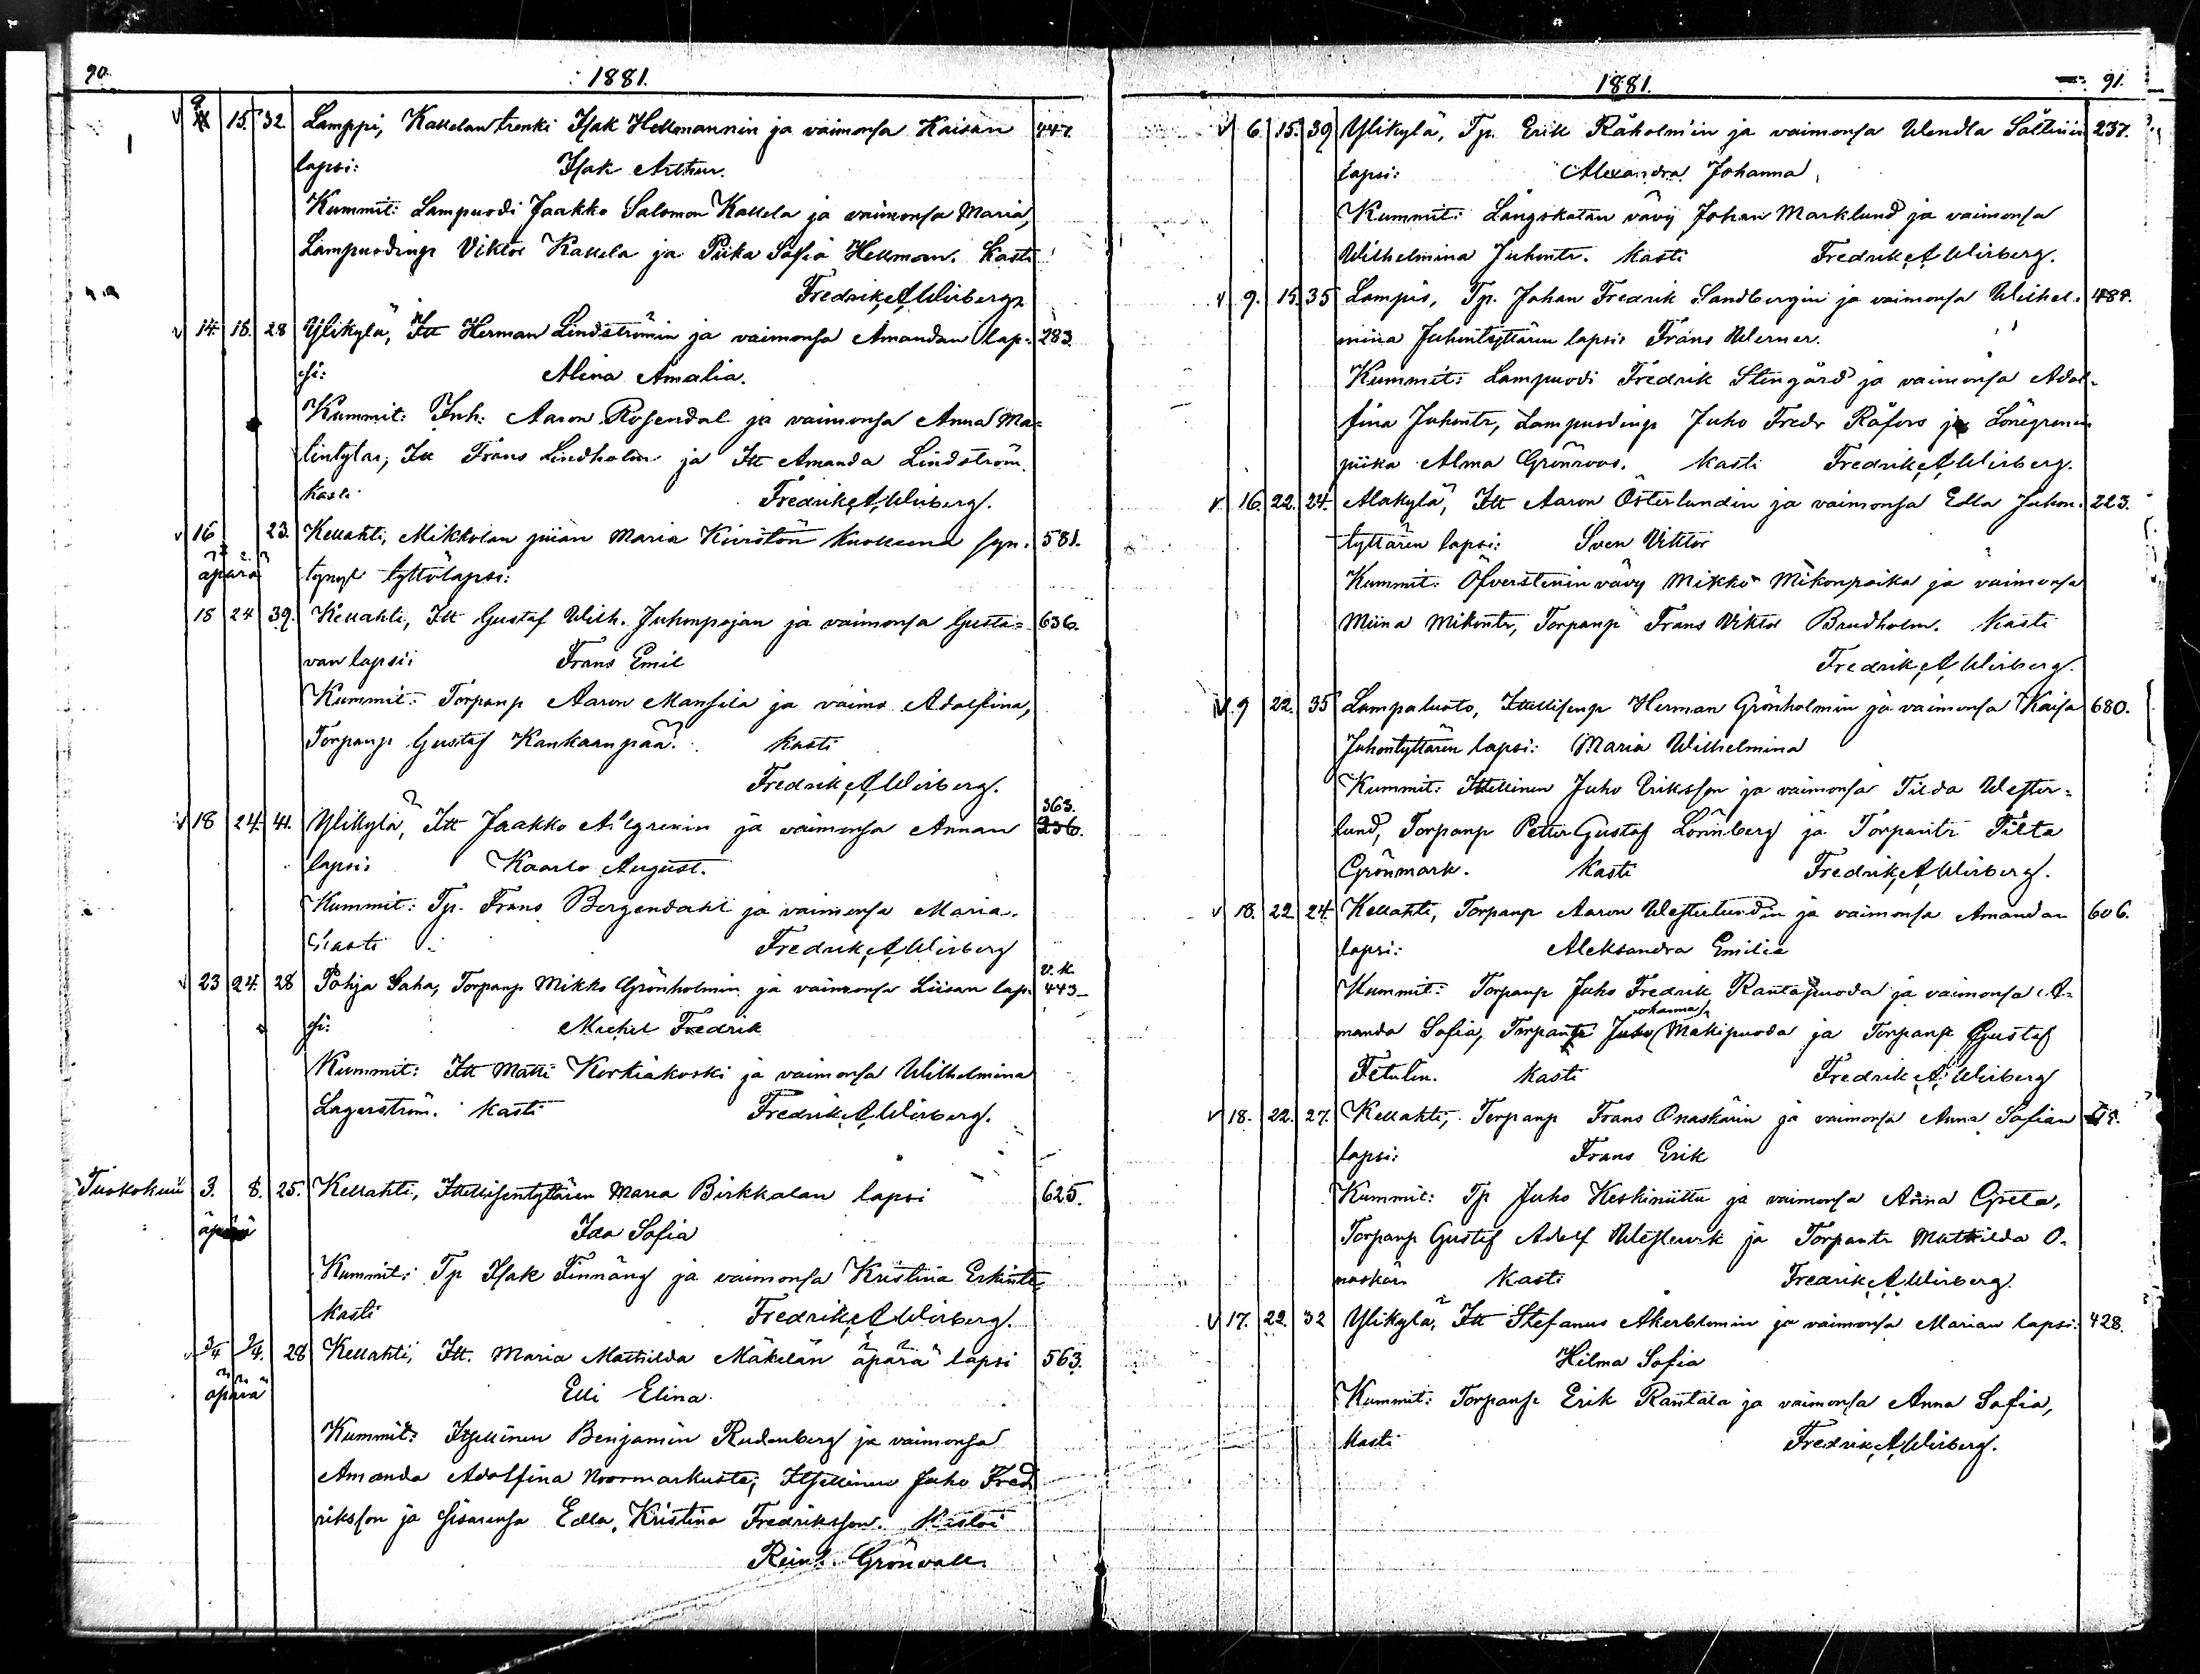 90. 1881.
9 15. 32. Lamppi, Kallelan trenki Isak Hellmannin ja vaimonsa Kaisan 447.
lapsi: Isak Arthur.
Kummit: Lampuodi Jaakko Salomon Kallela ja vaimonsa Maria,
Lampuodinp Viktor Kallela ja Piika Sofia Hellman. Kasti
Fredrik A. Wirberg.
14. 15. 28 Ylikylä, Itt Herman Lindströmin ja vaimonsa Amandan lap- 283.
si: Alina Amalia.
Kummit: Inh: Aaron Rosendal ja vaimonsa Anna Ma-
Itt Frans Lindholm ja Itt Amanda Lindström.
Kasti Fredrik A. Wirberg.
16 23. Kellahti, Mikkolan piian Maria Kivistön kuolleena syn- 581.
äpärä tynyt tyttölapsi:
18 24 39. Kellahti, Itt Gustaf Wilh. Juhonpojan ja vaimonsa Gusta- 636.
van lapsi: Frans Emil
Kummit: Torpanp Aaron Mansila ja vaimo Adolfina,
Torpanp Gustaf Kankaanpää. Kasti
Fredrik A. Wirberg.
363.
18 24. 41. Ylikylä, Itt Jaakko Ahlgrenin ja vaimonsa Annan 236.
lapsi: Kaarlo August.
Kummit: Tp. Frans Bergendahl ja vaimonsa Maria.
Kasti Fredrik A. Wirberg
v. k.
23 24. 28 Pohja Saha, Torpanp Mikko Grönholmin ja vaimonsa Liisan lap- 443
si: Michel Fredrik
Kummit: Itt Matti Kortiakoski ja vaimonsa Wilhelmina
Lagerström. Kasti Fredrik A. Wirberg.
Tuokokuu 3. 8. 25. Kellahti, Itsellisentyttären Maria Birkkalan lapsi 625.
äpärä Ida Sofia
Kummit: Tp Isak Finnäng ja vaimonsa Kristina Erkintr
Kasti Fredrik A. Wirberg.
3/4 28 Kellahti, Itt. Maria Mathilda Mäkelän äpärä lapsi 563.
äpärä Elli Elina.
Kummit: Itsellinen Benjamin Rudenberg ja vaimonsa
Amanda Adolfina Noormarkusta; Itsellinen Juho Fred
riksson ja sisarensa Edla Kristina Fredriksson. Kastoi
Reinh. Grönvall.
1881. 91.
6. 15. 39 Ylikylä, Tp. Erik Råholmin ja vaimonsa Wendla 237.
lapsi: Alexandra Johanna,
Kummit: Långskatan vävy Johan Marklund ja vaimonsa
Wilhelmina Juhontr. Kasti Fredrik A. Wirberg.
9. 15. 35 Lampis, Tp. Johan Fredrik Sandbergin ja vaimonsa Wilhel- 484.
mina Juhontyttären lapsi: Frans Werner.
Kummit: Lampuodi Fredrik Stengård ja vaimonsa Adol-
fina Juhontr, Lampuodinp Juho Fredr Råfors ja Lönegrenin
piika Alma Grönroos. Kasti Fredrik A. Wirberg.
16. 22. 24. Alakylä, Itt Aaron Österlundin ja vaimonsa Edla Juhon- 223.
tyttären lapsi: Sven Viktor
Kummit: Öfverstenin vävy Mikko Mikonpoika ja vaimonsa
Miina Mikontr, Torpanp Frans Viktor Brudholm. Kasti
Fredrik A. Wirberg.
9 22. 35 Lampaluoto, Itsellisenp Herman Grönholmin ja vaimonsa Kaisa 680.
Juhontyttären lapsi: Maria Wilhelmina
Kummit: Itsellinen Juho Eriksson ja vaimonsa Tilda Wester-
lund, Torpanp Petter Gustaf Lönnberg ja Torpantr Tilta
Grönmark. Kasti Fredrik A. Wirberg.
18. 22 24. Kellahti, Torpanp Aaron Westerlundin ja vaimonsa Amandan 606.
lapsi: Aleksandra Emilia
Kummit: Torpanp Juho Fredrik Rantapuoda ja vaimonsa A-
ohanna
manda Sofia, Torpantr Juho Mäkipuoda ja Torpanp Gustaf
Fetulin. Kasti Fredrik A. Wirberg
18. 22. 27. Kellahti, Torpanp Frans Onaskärin ja vaimonsa Anna Sofian
lapsi: Frans Erik
Kummit: Tp Juho Keskiniittu ja vaimonsa Anna Greta,
Torpanp Gustaf Adolf Westervik ja Torpantr Mathilda O-
naskär. Kasti Fredrik A. Wirberg.
17. 22. 32 Ylikylä, Itt Stefanus Åkerblomin ja vaimonsa Marian lapsi: 428.
Hilma Sofia
Kummit: Torpanp Erik Rantala ja vaimonsa Anna Sofia,
Kasti Fredrik A. Wirberg.